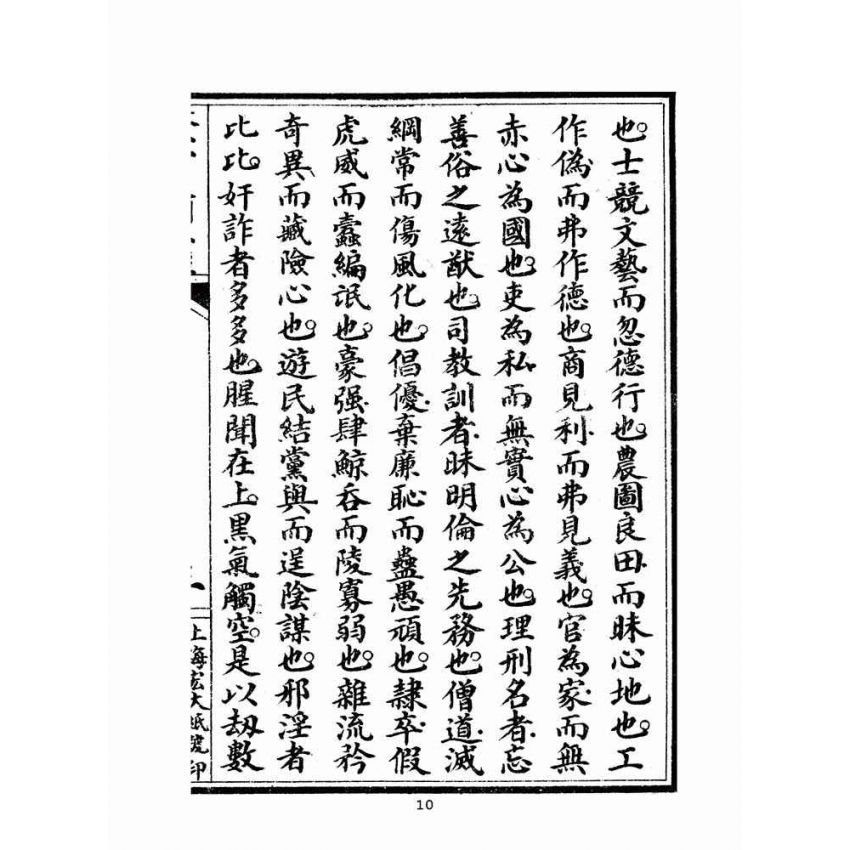 也。士競文藝而忽德行也。農圖良田而昧心地也。工
作偽而弗作德也。商見利而弗見義也。官為家而無
赤心為國也。吏為私而無實心為公也。理刑名者。忘
善俗之遠猷也。司教訓者。昧明倫之先務也。僧道滅
綱常而傷風化也。倡優棄廉恥而蠱愚頑也。隸卒假
虎威而蠹編氓也。豪強肆鯨吞而陵寡弱也。雜流矜
奇異而藏險心也。遊民結黨與而逞陰謀也。邪淫者
比比。奸詐者多多也。腥聞在上。黑氣觸空。是以劫數
上海宏大紙號印
10